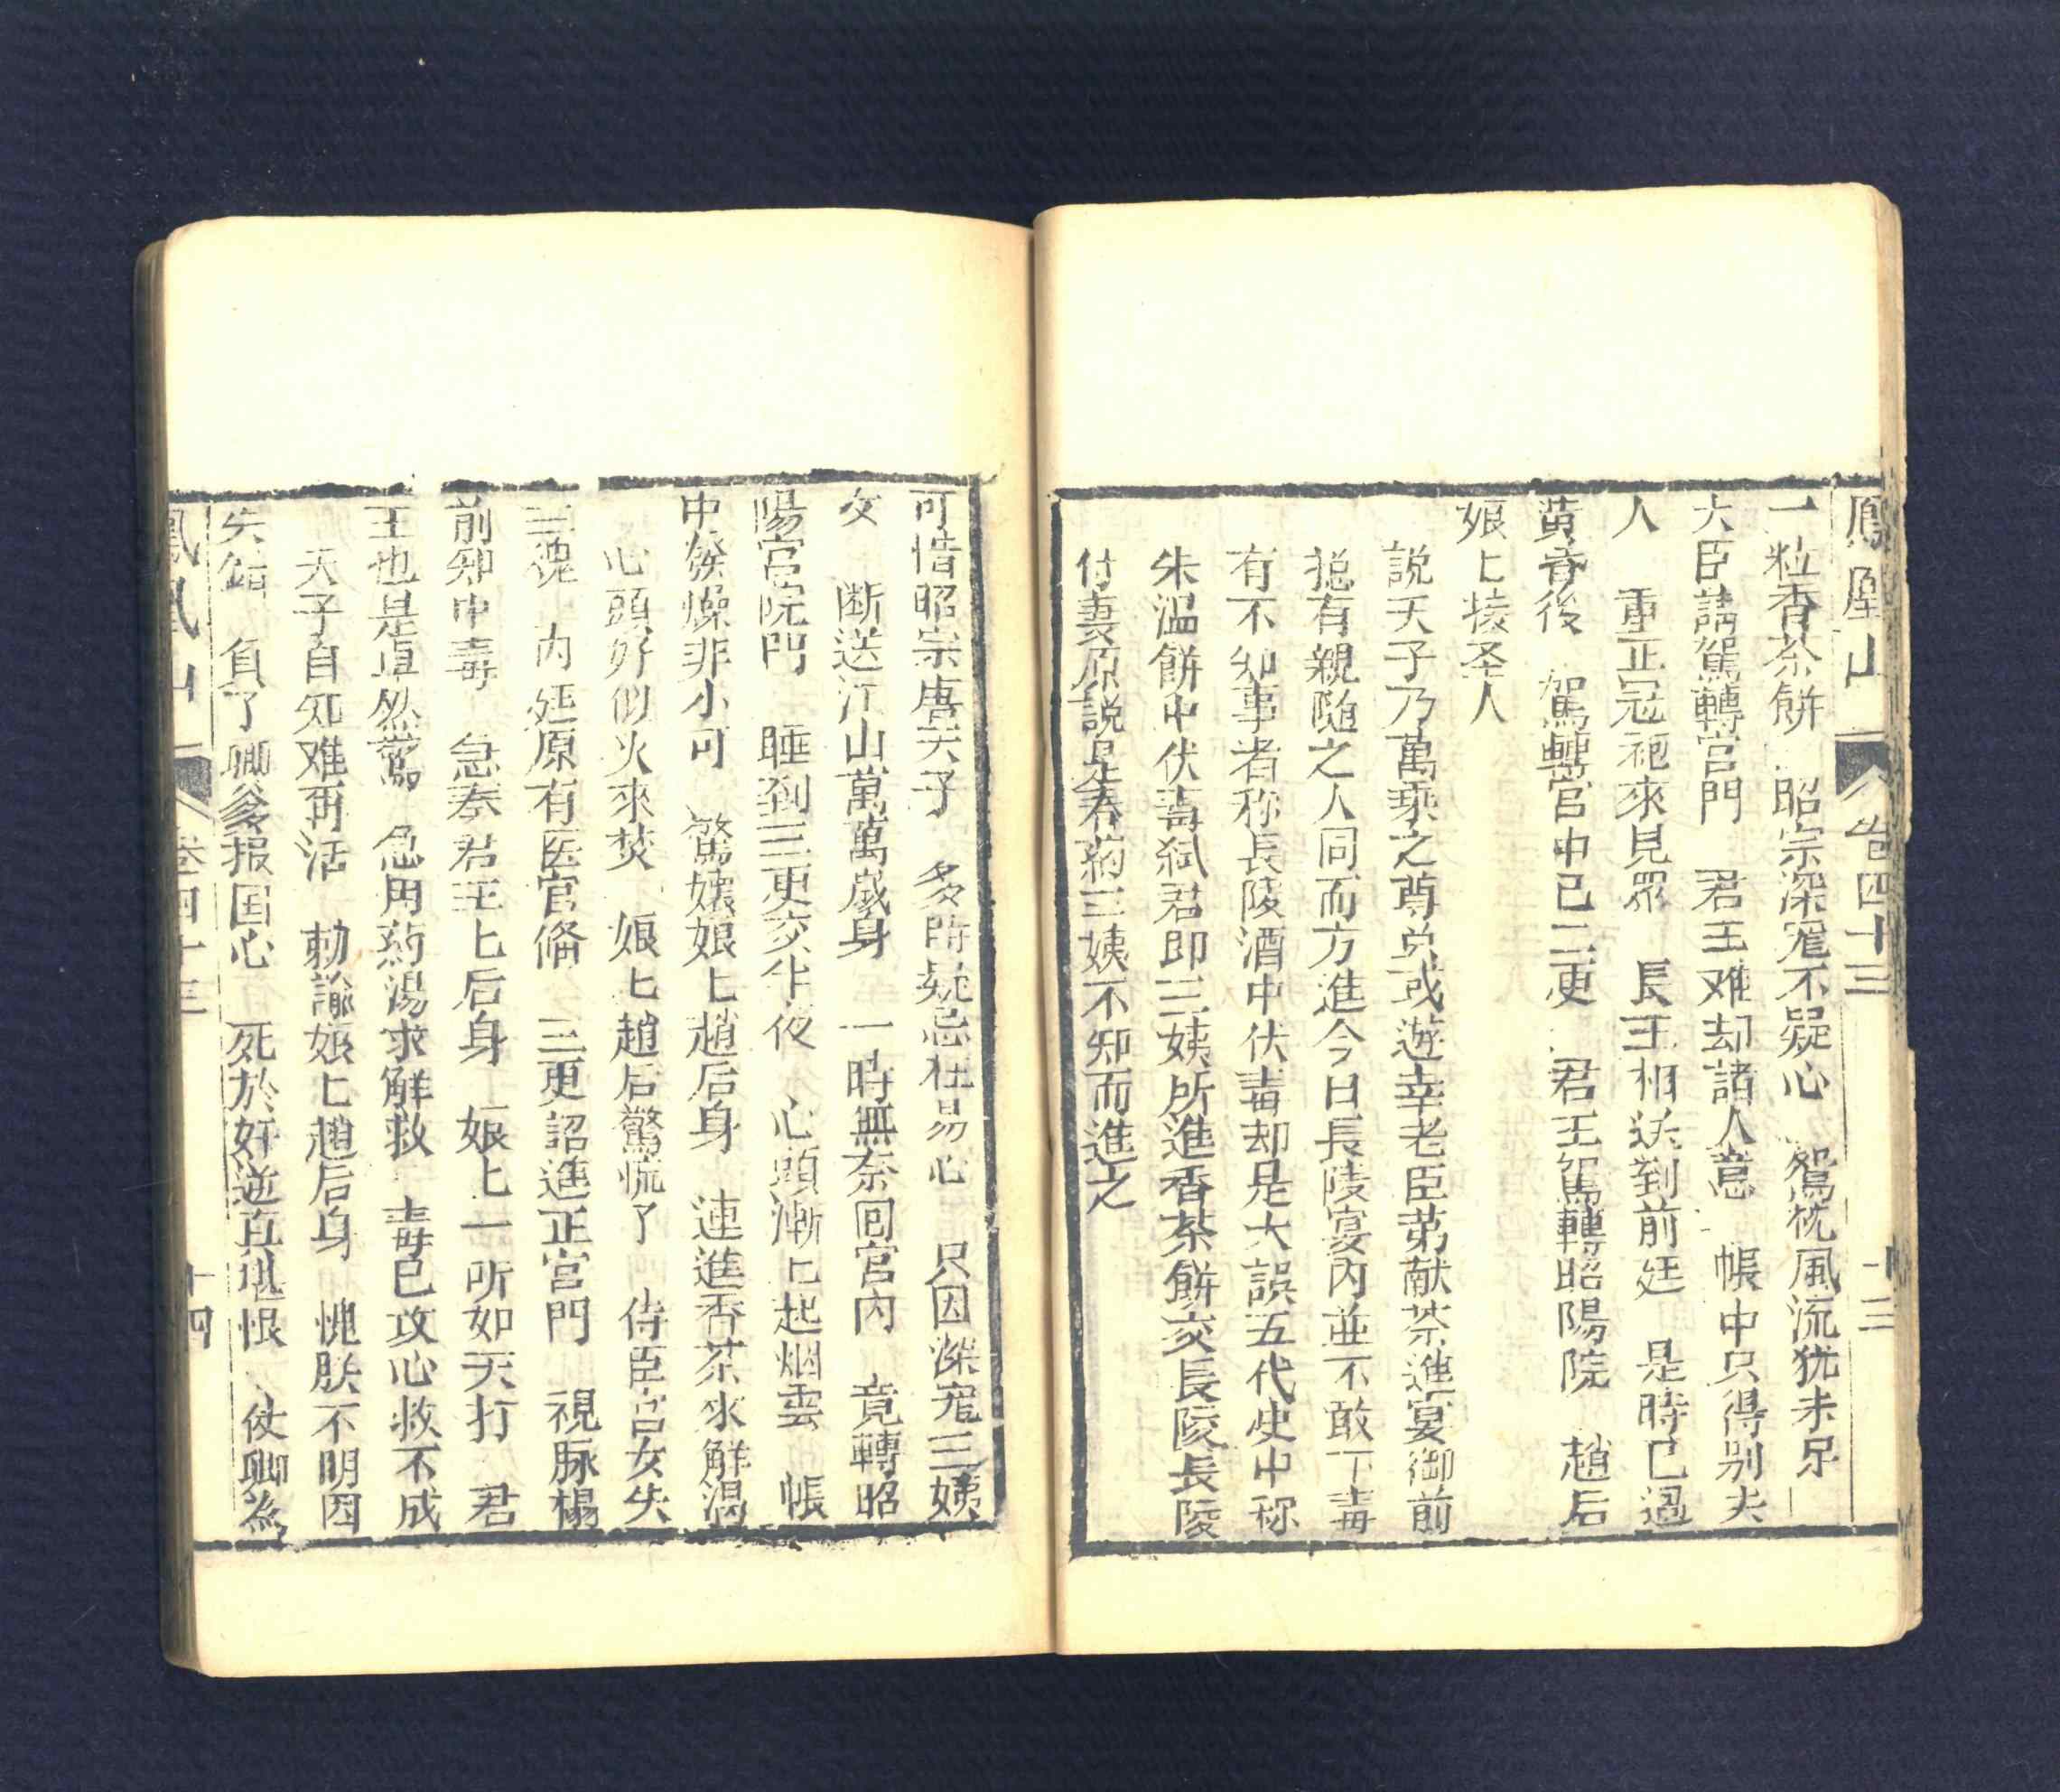 鳳凰山 卷四十三 十三
一粒香茶餅 昭宗深寵不疑心 鴛枕風流犹未足
大臣請駕轉宮門 君王难却諸人意 帳中只得别夫
人 重正冠袍來見眾 長王相送到前廷 是時已過
黃昏後 駕轉宮中已二更 君王駕轉昭陽院 趙后
娘匕接圣人
說天子乃萬乘之尊尚或遊幸老臣第献茶進宴御前
捴有親随之人同而方進今日長陵宴內並不敢下毒
有不知事者称長陵酒中伏毒却是大誤五代史中称
朱温餅中伏毒弑君即三姨所進香茶餅交長陵長陵
付妻原説是春药三姨不知而進之
可惜昭宗唐天子 多時疑忌枉易心 只因深寵三姨
女 断送江山萬萬歲身 一時無奈回宮內 竟轉昭
陽宮院門 睡到三更交半夜 心頭漸匕起烟雲 帳
中發燥非小可 驚壞娘匕趙后身 連進香茶來解渴
心頭好似火來焚 娘匕趙后驚慌了 侍臣宮女失
三魂 內廷原有医官俻 三更詔進正宮門 視脉榻
前知中毒 急奏君王匕后身 娘匕一听如天打 君
王也是卓然驚 急用药湯求解救 毒已攻心救不成
天子自知难再活 勅諭娘匕趙后身 愧朕不明因
失錯 負了卿爹报国心 死於奸逆真堪恨 仗卿為
鳳凰山 卷四十三 十四